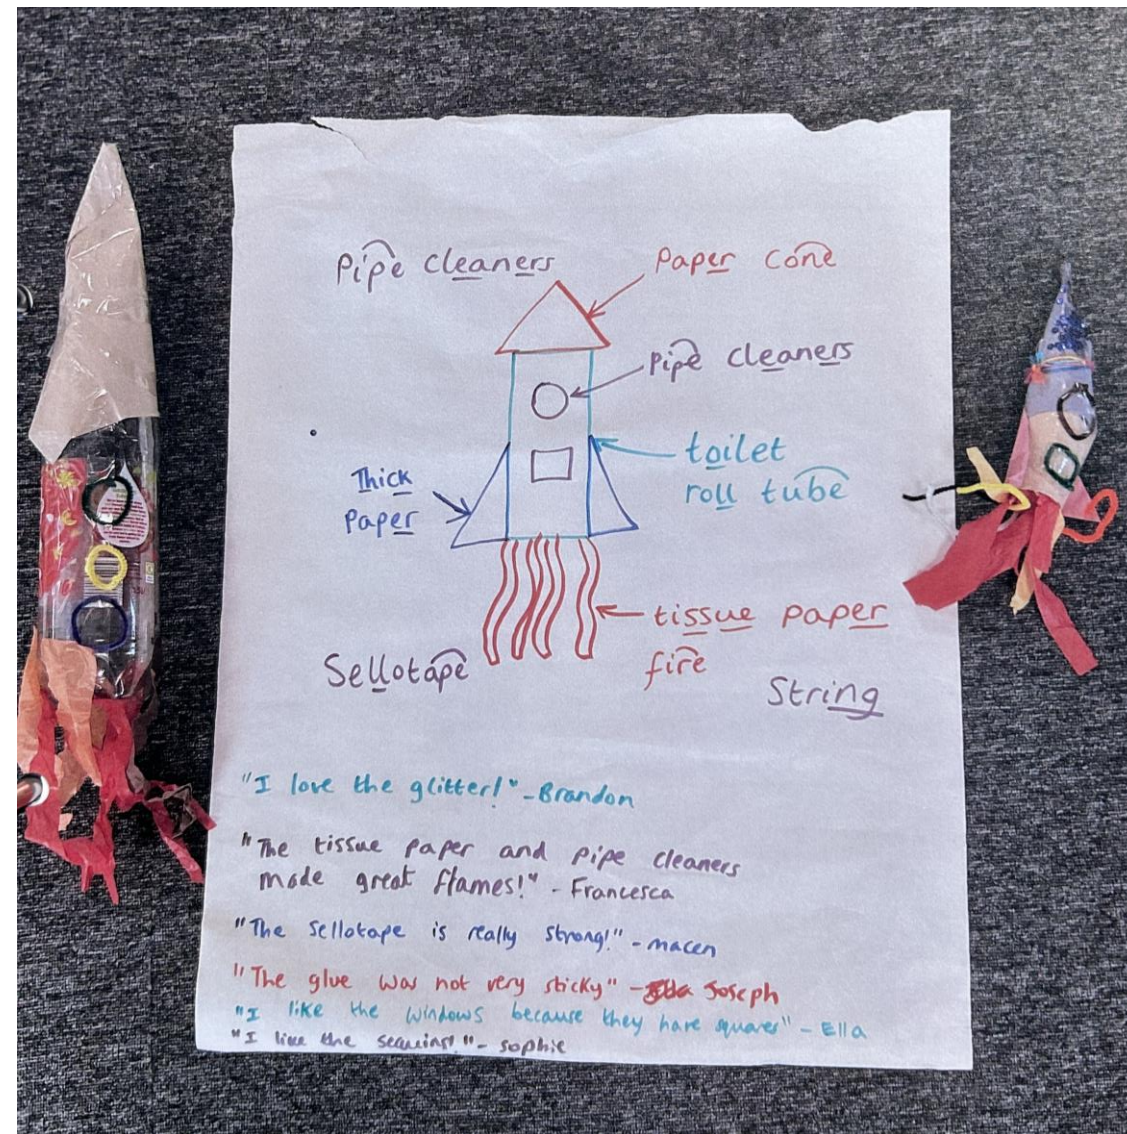 Pipe cleaners
Paper cone
Pipe cleaners
toilet
roll tube
Thick
paper
tissue paper
fire
Sellotape
String
"I love the glitter!" - Brandon
"The tissue paper and pipe cleaners
made great flames!" - Francesca
"The sellotape is really strong!" - macen
"The glue was not very sticky" - Joseph
"I like the windows because they have squares" - Ella
"I like the sequins!" - Sophie